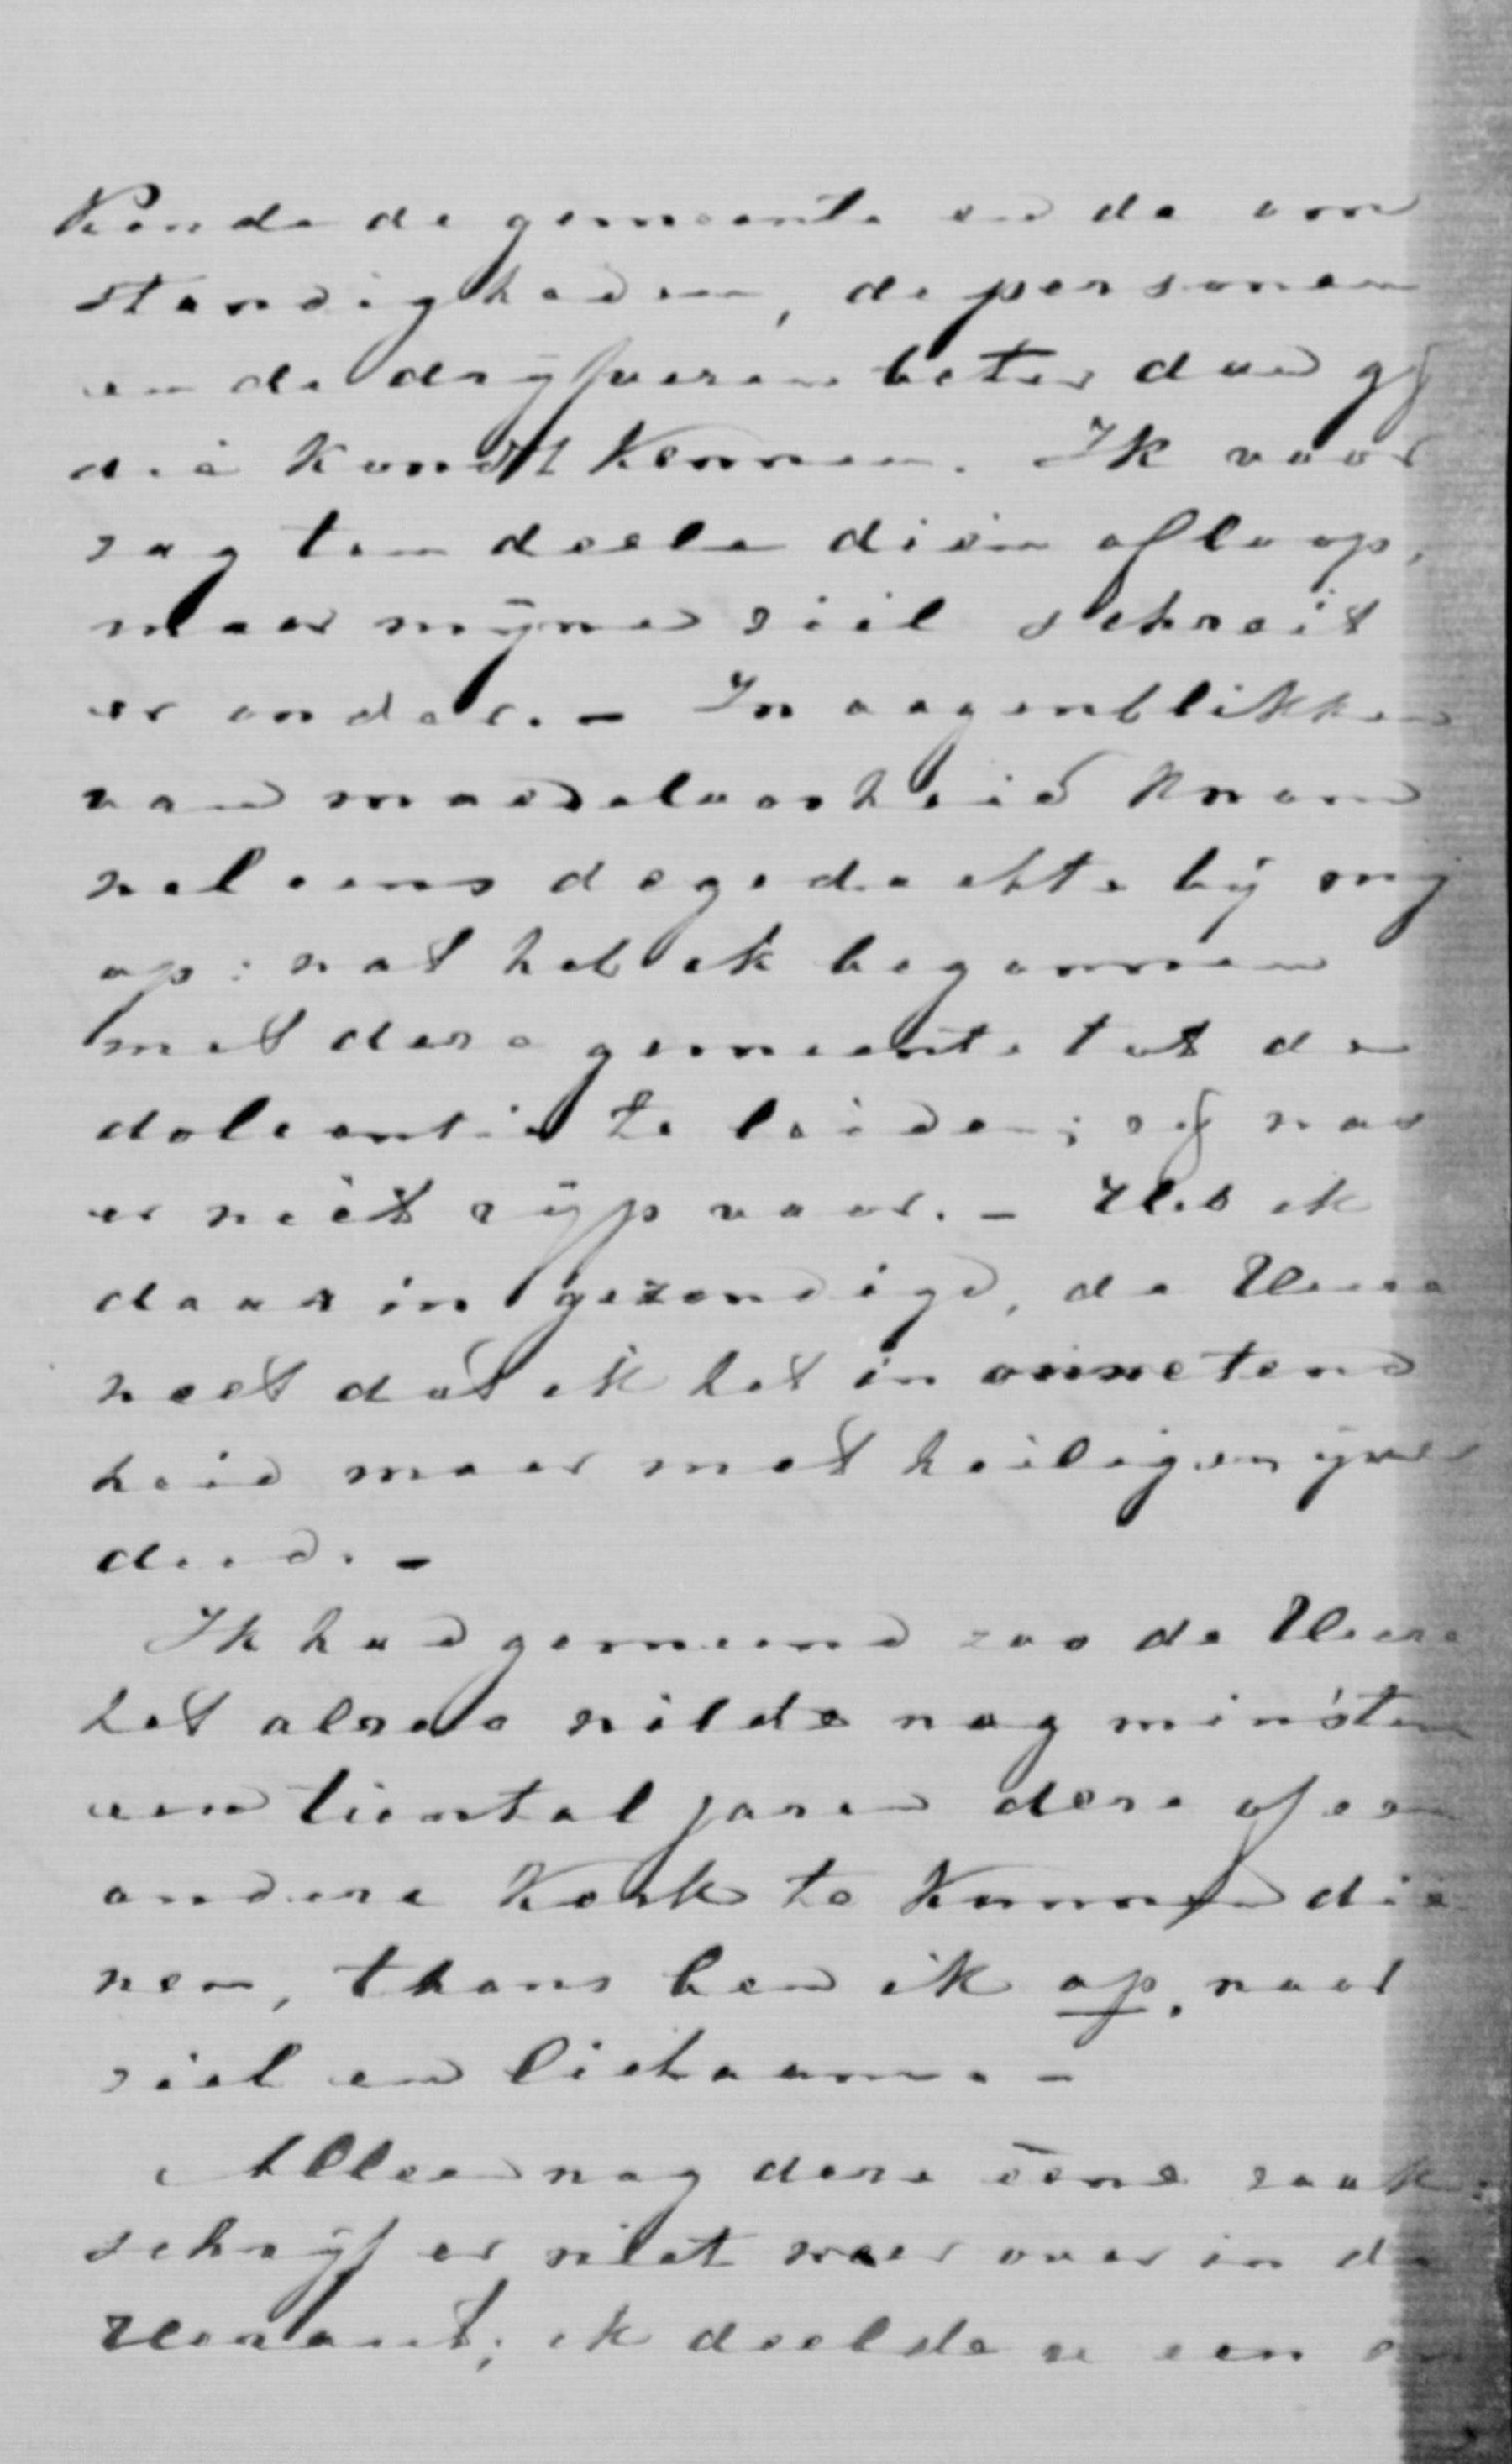 Kende de gemeente en de om
standigheden, de personen
en de drijfveren beter dan gij
die kondt kennen. Ik voor
zag ten deele dien afloop,
maar mijne ziel schreit
er onder. - In oogenblikken
van moedeloosheid kwam
wel eens de gedachte bij mij
op: wat heb ik begonnen
met deze gemeente tot de
doleantie te leiden; zij was
er niet rijp voor. - Heb ik
daar in gezondigd, de Heere
weet dat ik het in onwetend
heid maar met heiligen ijver
deed. -
Ik had gemeend zoo de Heere
het alzoo wilde nog minsten
een tiental jaren deze of een
andere Kerk te kunnen die
nen, thans ben ik op, naar
ziel en lichaam. -
Alleen nog deze ééne zaak:
schrijf er niet meer over in de
Heraut; ik deelde u een